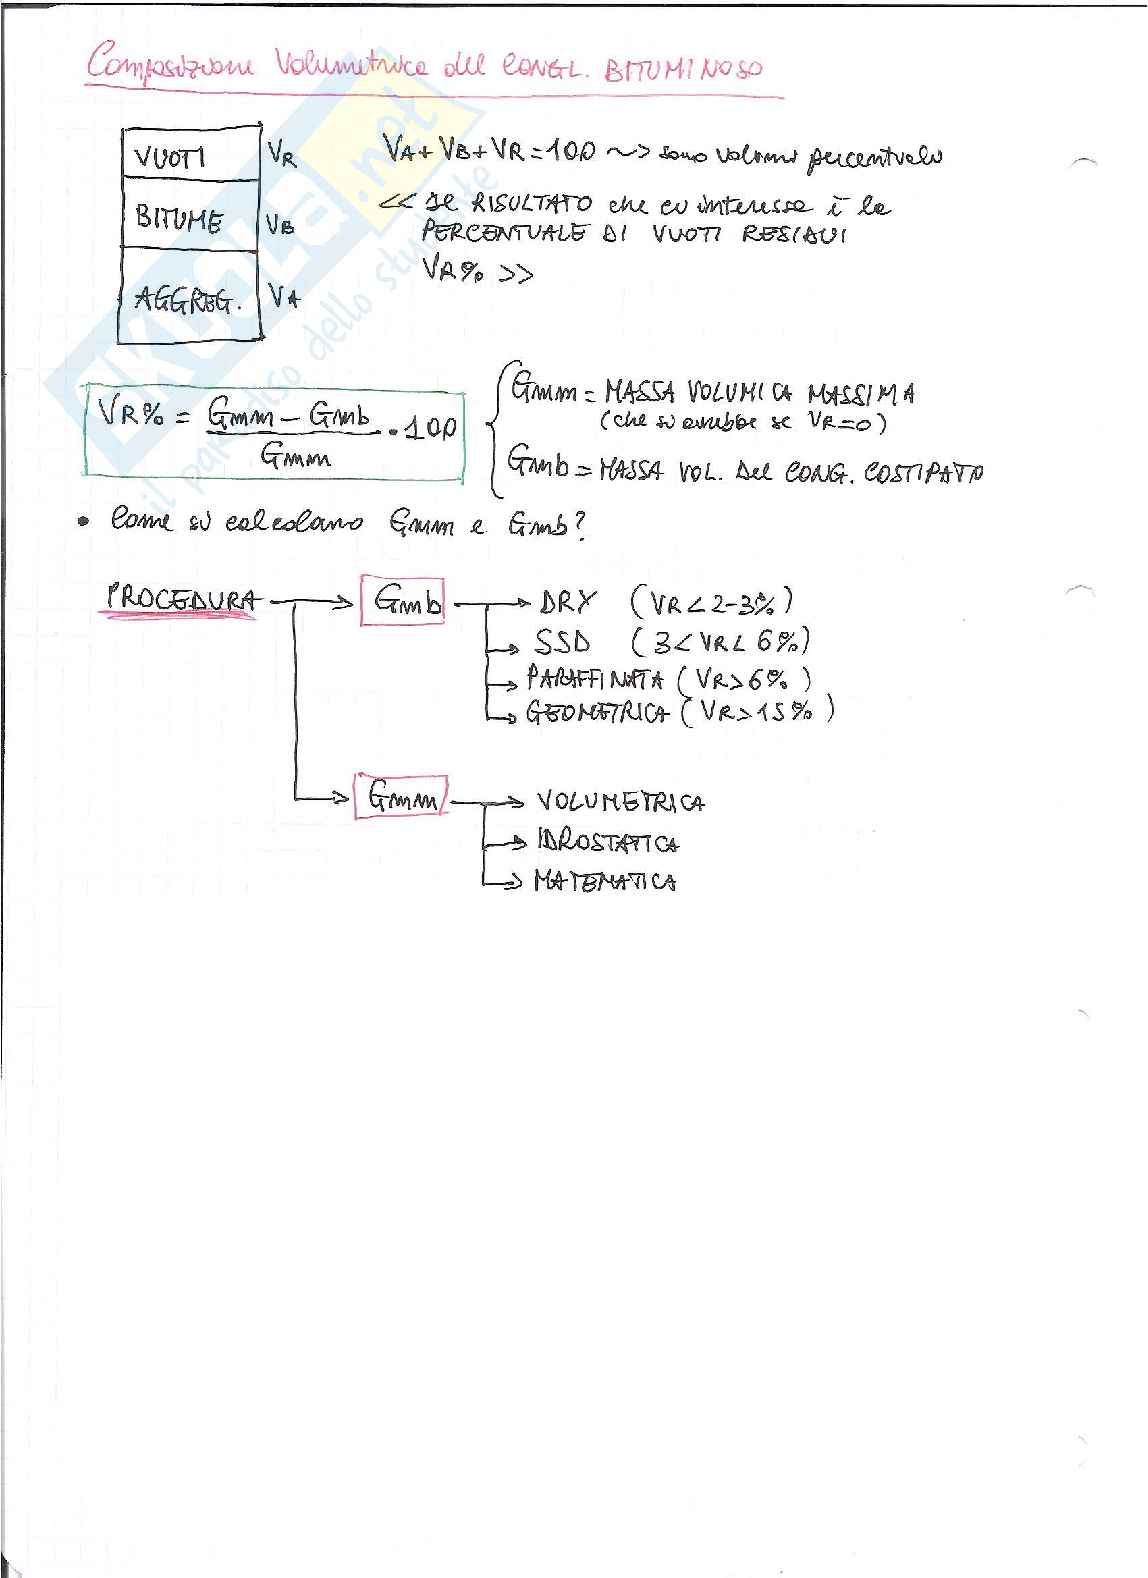 Composizione Volumetrica del CONGL. BITUMINOSO
VUOTI VR
BITUME VB
AGGREG. VA
VA + VB + VR = 100 ~> sono volumi percentuali
<< il RISULTATO che ci interessa è la
PERCENTUALE DI VUOTI RESIDUI
VR% >>
VR% = Gmm - Gmb / Gmm . 100
Gmm = MASSA VOLUMICA MASSIMA
(che si avrebbe se VR=0)
Gmb = MASSA VOL. Del CONG. COSTIPATO
• Come si calcolano Gmm e Gmb?
PROCEDURA
Gmb
DRY (VR < 2-3%)
SSD (3 < VR < 6%)
PARAFFINATA (VR > 6%)
GEOMETRICA (VR > 15%)
Gmm
VOLUMETRICA
IDROSTATICA
MATEMATICA
SKUOLA.net
il paradiso dello studente